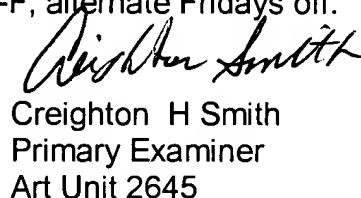 -F, alternate Fridays off.
Creighton Smith
Creighton H Smith
Primary Examiner
Art Unit 2645